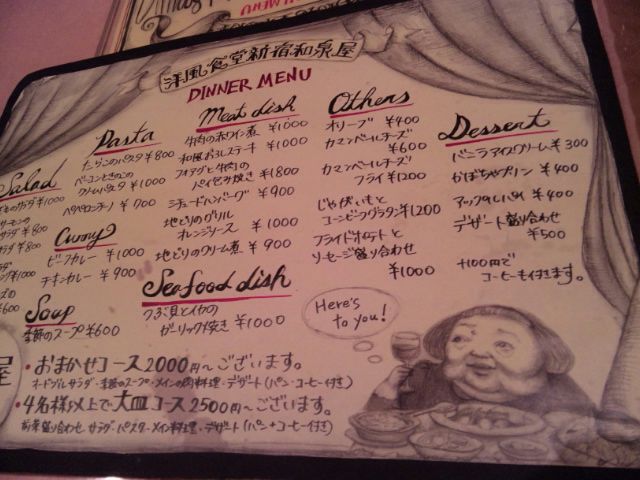 洋風食堂新宿和泉屋
DINNER MENU
Salad
サラダ ¥1000
サーモンの
サラダ ¥800
¥800
¥1000
Pasta
たらこのパスタ ¥800
ベーコンときのこの
クリームパスタ ¥1000
ペペロンチーノ ¥700
Curry
ビーフカレー ¥1000
チキンカレー ¥900
Soup
季節のスープ ¥600
Meat dish
牛肉の赤ワイン煮 ¥1000
和風おろしステーキ ¥1000
フォアグラと牛肉の
パイ包み焼き ¥1800
ジューシーハンバーグ ¥900
地どりのグリル
オレンジソース ¥1000
地どりのクリーム煮 ¥900
Seafood dish
つぶ貝とイカの
ガーリック焼き ¥1000
Others
オリーブ ¥400
カマンベールチーズ
¥600
カマンベールチーズ
フライ ¥1200
じゃがいもと
コンビーフグラタン ¥1200
フライドポテトと
ソーセージ盛り合わせ
¥1000
Dessert
バニラアイスクリーム ¥300
かぼちゃプリン ¥400
アップルパイ ¥400
デザート盛り合わせ
¥500
+100円で
コーヒーも付きます。
Here's
to you!
・おまかせコース2000円〜ございます。
オードブル・サラダ・季節のスープ・メインの肉料理・デザート(パン・コーヒー付き)
・4名様以上で大皿コース2500円〜ございます。
前菜盛り合わせ・サラダ・パスタ・メイン料理・デザート(パン+コーヒー付き)
屋